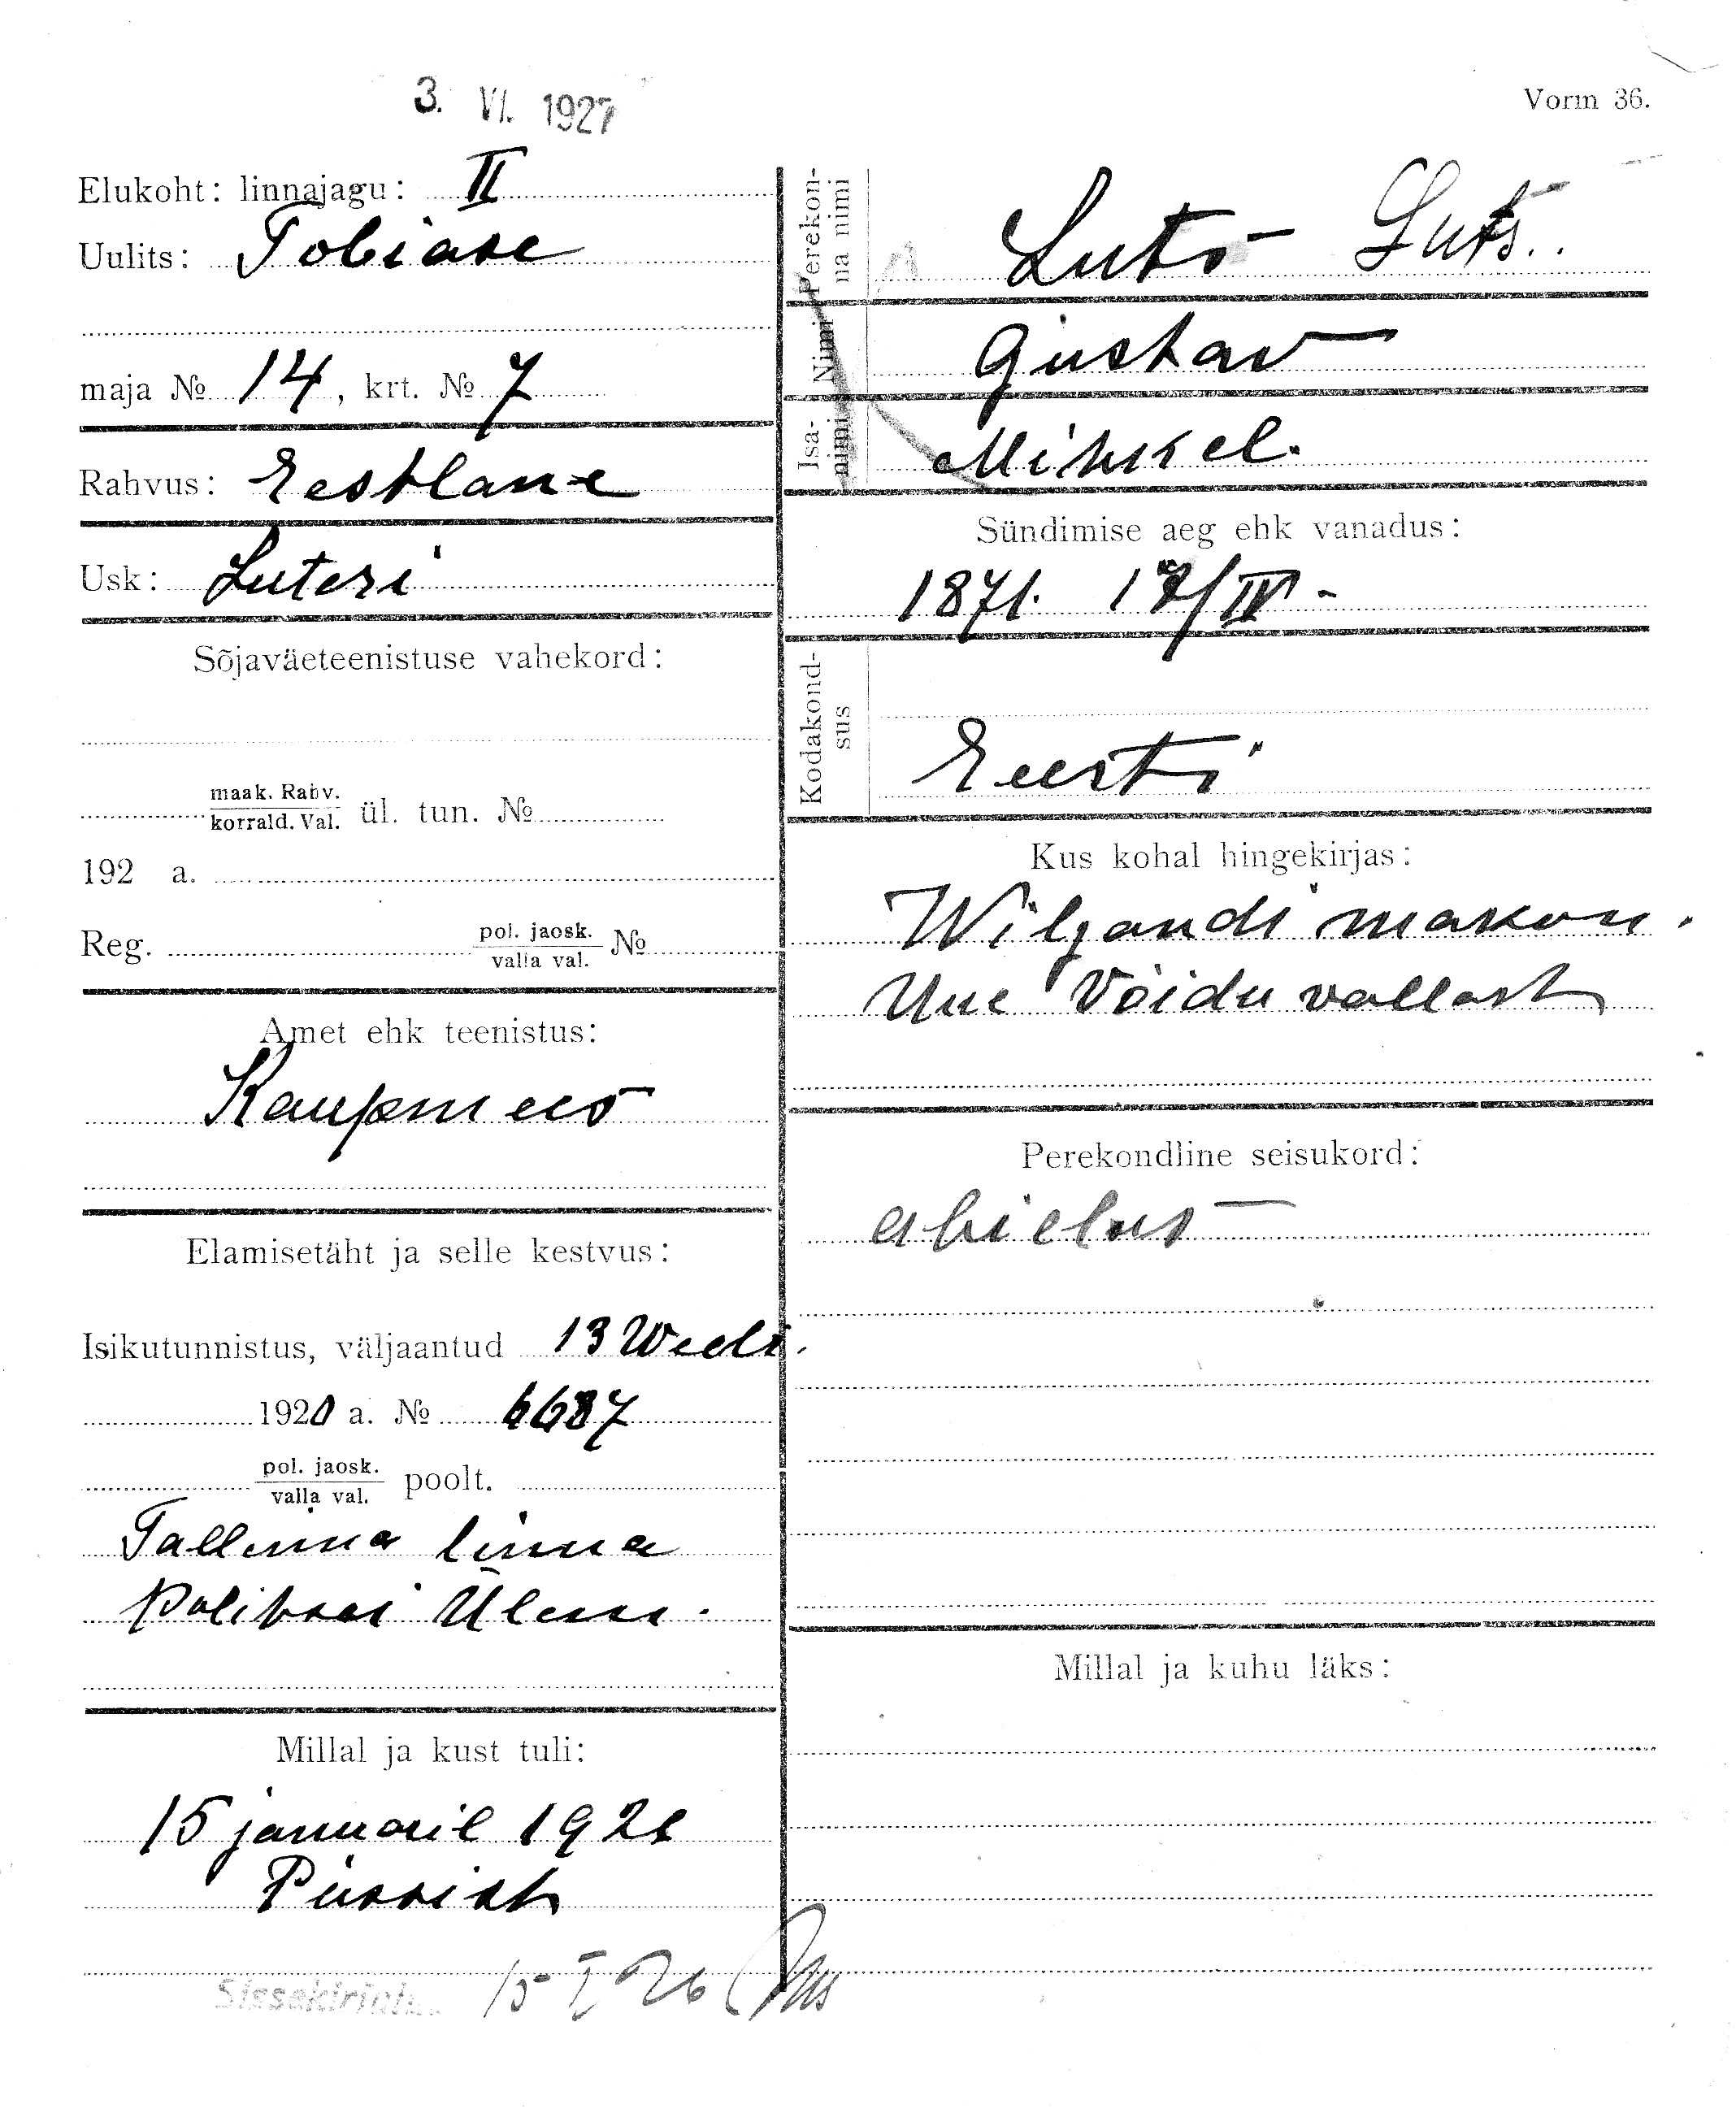 3. VI. 1927
Vorm 36.
Elukoht: linnajagu: II
Uulits: Tobiase
maja № 14, krt. № 7
Rahvus: Eestlane
Usk: Luteri
Sõjaväeteenistuse vahekord:
maak. Rahv.
korrald. Val. ül. tun. №
192 a.
Reg. pol. jaosk.
valla val. №
Amet ehk teenistus:
Kaupmees
Elamisetäht ja selle kestvus:
Isikutunnistus, väljaantud 13 Weebr.
1920 a. № 6687
pol. jaosk.
valla val. poolt.
Tallinna linna
Politsei Ülem.
Millal ja kust tuli:
15 januaril 1926
Püssist
Sissekirjut. 15 I 26
Perekon-
na nimi
Luts Luts.
Nimi Gustav
Isa-
nimi Mihkel.
Sündimise aeg ehk vanadus:
1871. 17/IV -
Kodakond-
sus
Eesti
Kus kohal hingekirjas:
Wiljandi makon.
Uue Võidu vallast
Perekondline seisukord:
abielus
Millal ja kuhu läks: